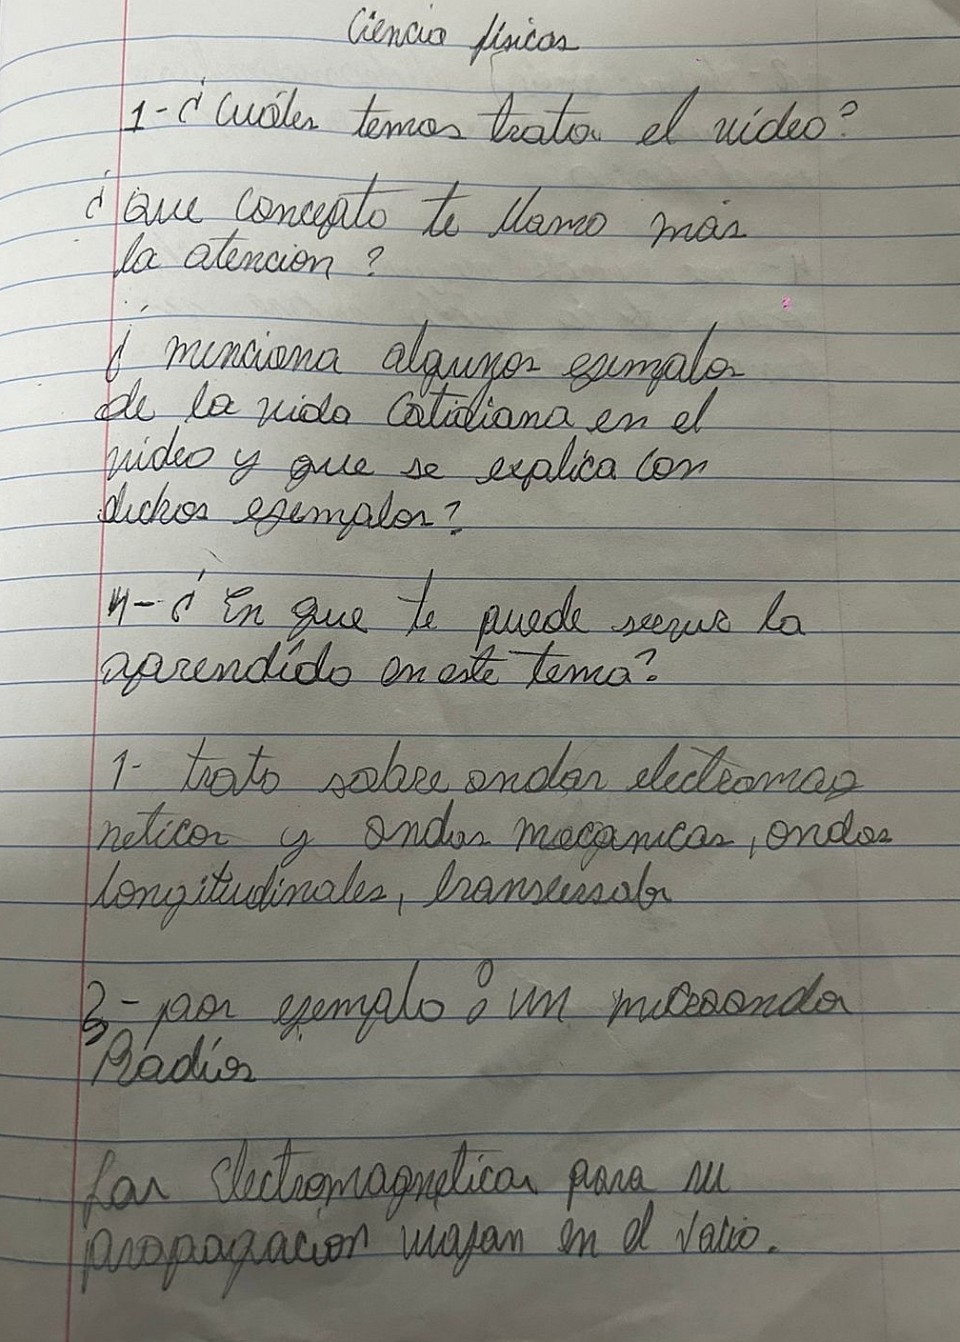 Ciencia físicas
1- ¿Cuáles temas trata el video?
¿Que concepto te llamo más
la atencion?
¿ menciona algunos ejemplos
de la vida Cotidiana en el
video y que se explica con
dichos ejemplos?
4- ¿En que te puede servir la
aprendído en este tema?
1- trato sobre ondas electromag
neticos y ondas mecanicas, ondas
longitudinales, transversales
3- por ejemplo: un microondas
Radios
Las Electromagneticas para su
propagación viajan en el vacio.